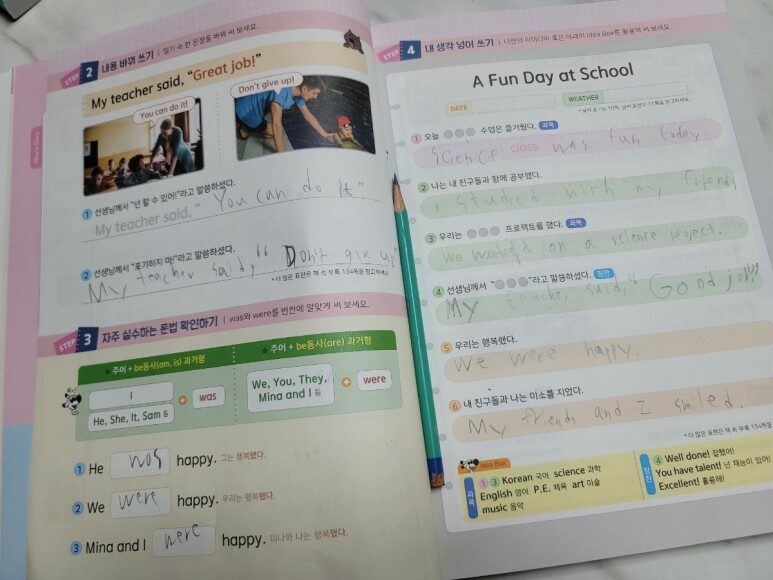 STEP 2 내용 바꿔 쓰기 | 일기 속 한 문장을 바꿔 써 보세요.
My teacher said, "Great job!"
You can do it!
Don't give up!
1 선생님께서 "넌 할 수 있어!"라고 말씀하셨다.
My teacher said, "You can do it"
2 선생님께서 "포기하지 마!"라고 말씀하셨다.
* 더 많은 표현은 책 속 부록 134쪽을 참고하세요.
My teacher said, "Don't give up"
STEP 3 자주 실수하는 문법 확인하기 | was와 were를 빈칸에 알맞게 써 보세요.
주어 + be동사(am, is) 과거형
I
He, She, It, Sam 등
+ was
주어 + be동사(are) 과거형
We, You, They,
Mina and I 등
+ were
1 He was happy. 그는 행복했다.
2 We were happy. 우리는 행복했다.
3 Mina and I were happy. 미나와 나는 행복했다.
STEP 4 내 생각 넣어 쓰기 | 나만의 아이디어 혹은 아래의 Idea Box를 활용해 써 보세요.
A Fun Day at School
DATE
WEATHER
1 오늘 수업은 즐거웠다. 과목
Science class was fun today
2 나는 내 친구들과 함께 공부했다.
I studied with my friends
3 우리는 프로젝트를 했다. 과목
We worked on a science project.
4 선생님께서 " "라고 말씀하셨다. 칭찬
My teacher said, "Good job!!"
5 우리는 행복했다.
We were happy
6 내 친구들과 나는 미소를 지었다.
My friends and I smiled.
* 더 많은 표현은 책 속 부록 134쪽을
Idea Box
과목
1 3 Korean 국어 science 과학
English 영어 P.E. 체육 art 미술
music 음악
칭찬
4 Well done! 잘했어!
You have talent! 넌 재능이 있어!
Excellent! 훌륭해!